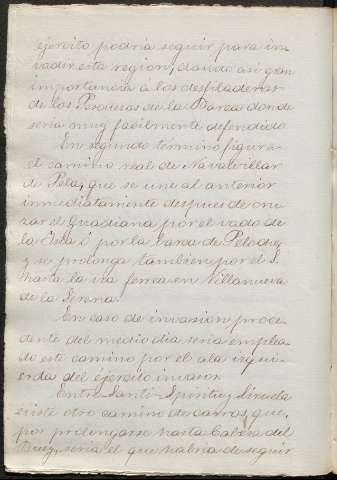 ejército podría seguir para in-
vadir esta region, dando asi gran
importancia á los desfiladeros
de los Pesqueros de la Barca donde
seria muy facilmente defendido.
En segundo termino figura
el camino real de Navalvillar
de Pela, que se une al anterior
inmediatamente despues de cru-
zar el Guadiana por el vado de
la Isla ó por la barca de
y se prolonga tambien por el S.
hasta la via ferrea en Villanueva
de la Serena.
En caso de invasion proce-
dente del medio dia seria emplea-
do este camino por el ala izqui-
erda del ejército invasor.
Entre Santi-Spiritus y Siruela
existe otro camino de carros, que,
por prolongarse hasta Cabeza del
Buey, seria el que habria de seguir